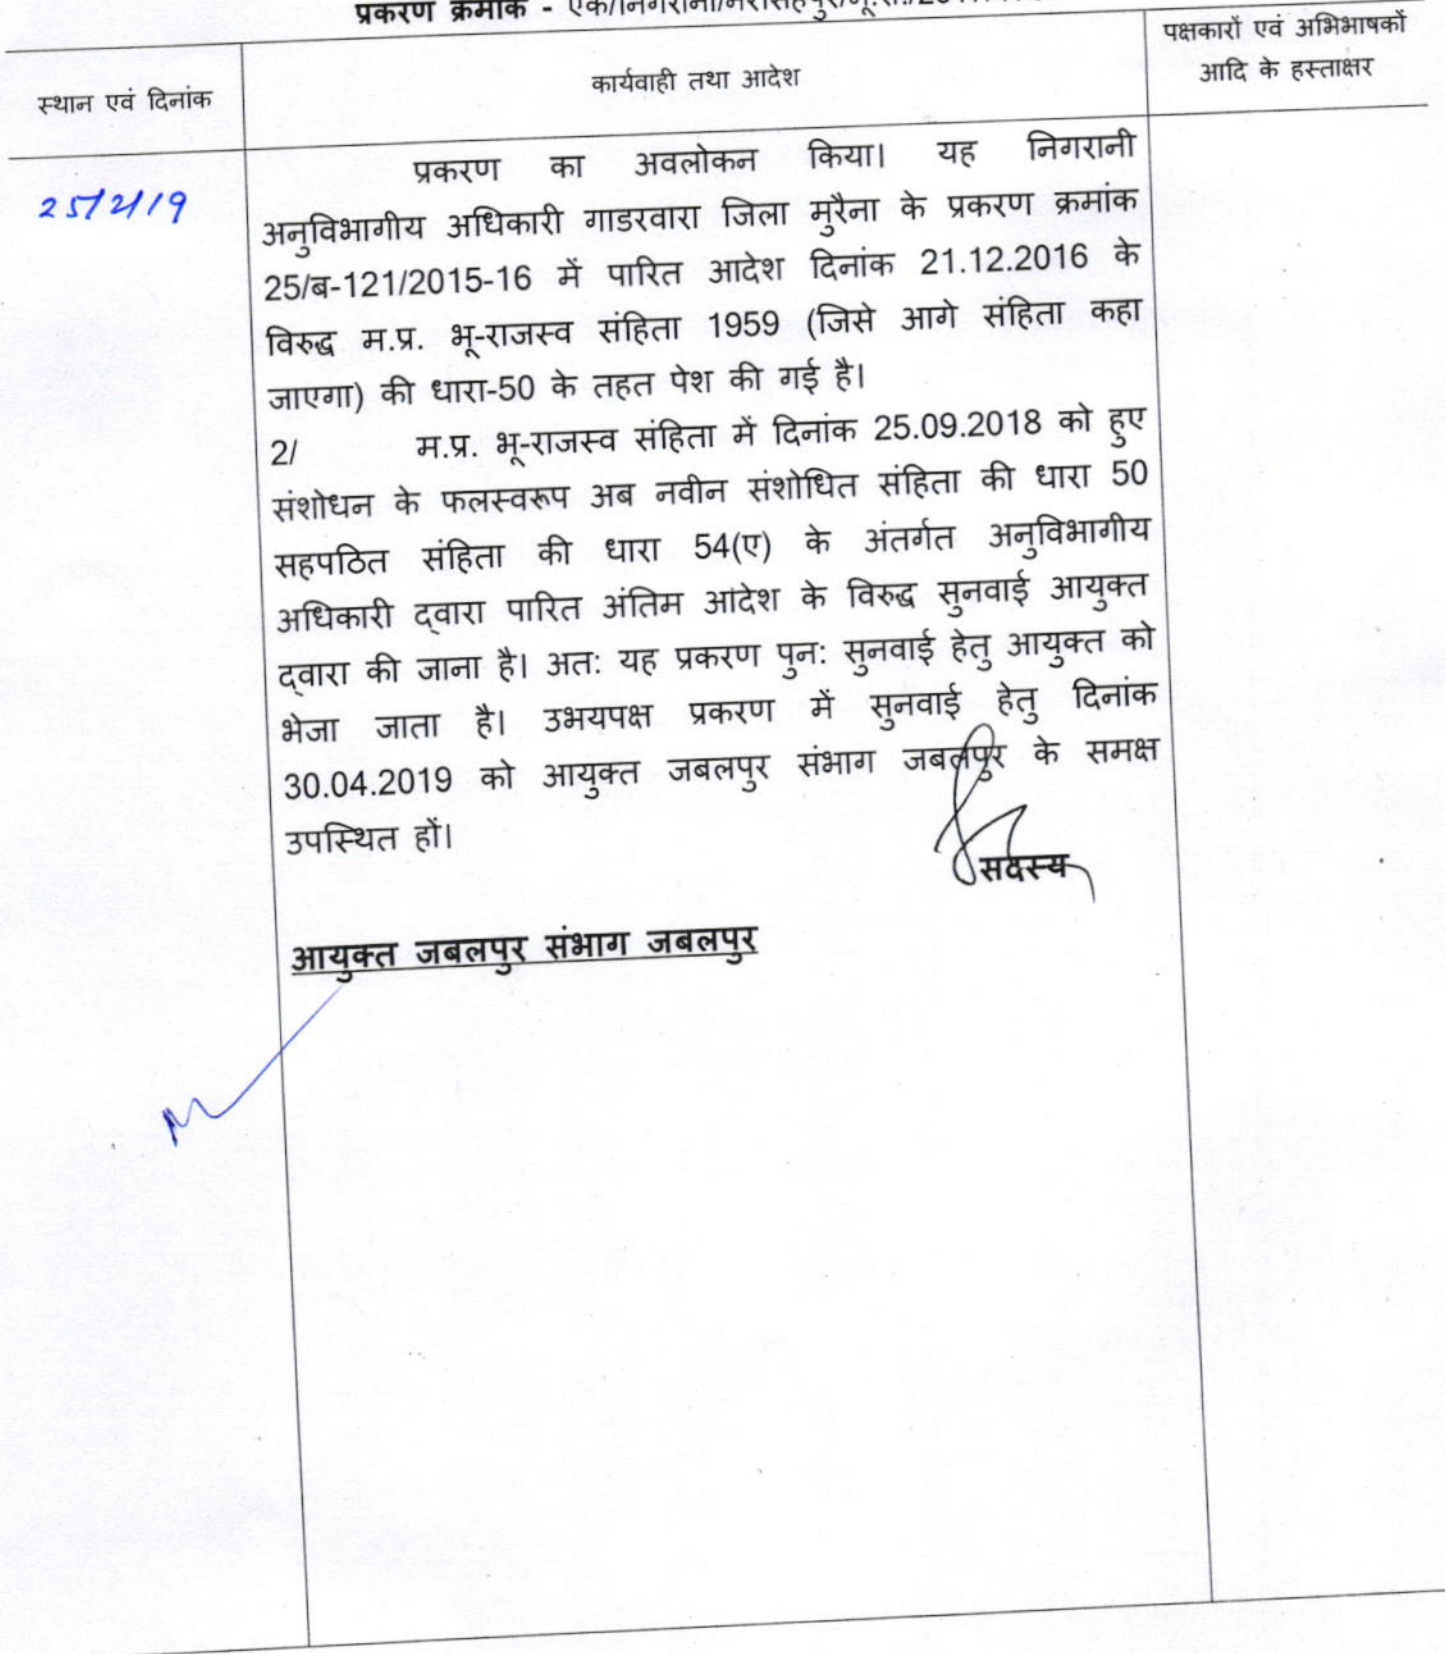 प्रकरण क्रमांक - एक/निगरानी/नरसिंहपुर/भू.रा./2017/
स्थान एवं दिनांक
कार्यवाही तथा आदेश
पक्षकारों एवं अभिभाषकों
आदि के हस्ताक्षर
25/2/19
प्रकरण का अवलोकन किया। यह निगरानी
अनुविभागीय अधिकारी गाडरवारा जिला मुरैना के प्रकरण क्रमांक
25/ब-121/2015-16 में पारित आदेश दिनांक 21.12.2016 के
विरुद्ध म.प्र. भू-राजस्व संहिता 1959 (जिसे आगे संहिता कहा
जाएगा) की धारा-50 के तहत पेश की गई है।
2/ म.प्र. भू-राजस्व संहिता में दिनांक 25.09.2018 को हुए
संशोधन के फलस्वरूप अब नवीन संशोधित संहिता की धारा 50
सहपठित संहिता की धारा 54(ए) के अंतर्गत अनुविभागीय
अधिकारी द्वारा पारित अंतिम आदेश के विरुद्ध सुनवाई आयुक्त
द्वारा की जाना है। अत: यह प्रकरण पुन: सुनवाई हेतु आयुक्त को
भेजा जाता है। उभयपक्ष प्रकरण में सुनवाई हेतु दिनांक
30.04.2019 को आयुक्त जबलपुर संभाग जबलपुर के समक्ष
उपस्थित हों।
सदस्य
आयुक्त जबलपुर संभाग जबलपुर